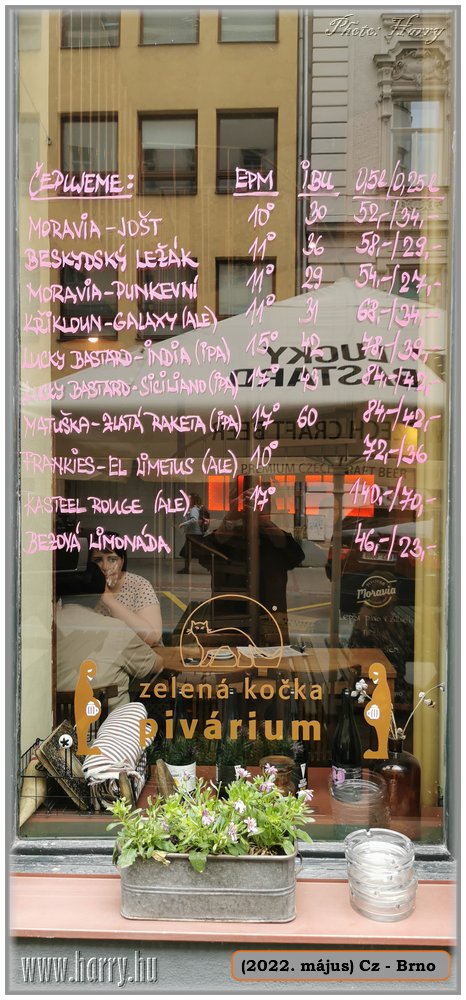 Photo: Harry
ČEPUJEME: EPM IBU 0,5l/0,25l
MORAVIA-JOŠT 10° 30 52,-/34,-
BESKYDSKÝ LEŽÁK 11° 36 58,-/29,-
MORAVIA-PUNKEVNÍ 11° 29 54,-/27,-
KŘIKLOUN-GALAXY (ALE) 11° 31 68,-/34,-
LUCKY BASTARD-INDIA (IPA) 15° 42 78,-/39,-
LUCKY BASTARD-SICILIANO (IPA) 17° 84,-/42,-
MATUŠKA-ZLATÁ RAKETA (IPA) 17° 60 84,-/42,-
FRANKIES-EL LIMETUS (ALE) 10° 72,-/36
KASTEEL ROUGE (ALE) 17° 140,-/70,-
BEZOVÁ LIMONÁDA 46,-/23,-
LUCKY
BASTARD
CZECH CRAFT BEER
PREMIUM CZECH CRAFT BEER
Moravia
zelená kočka
pivárium
www.harry.hu
(2022. május) Cz - Brno